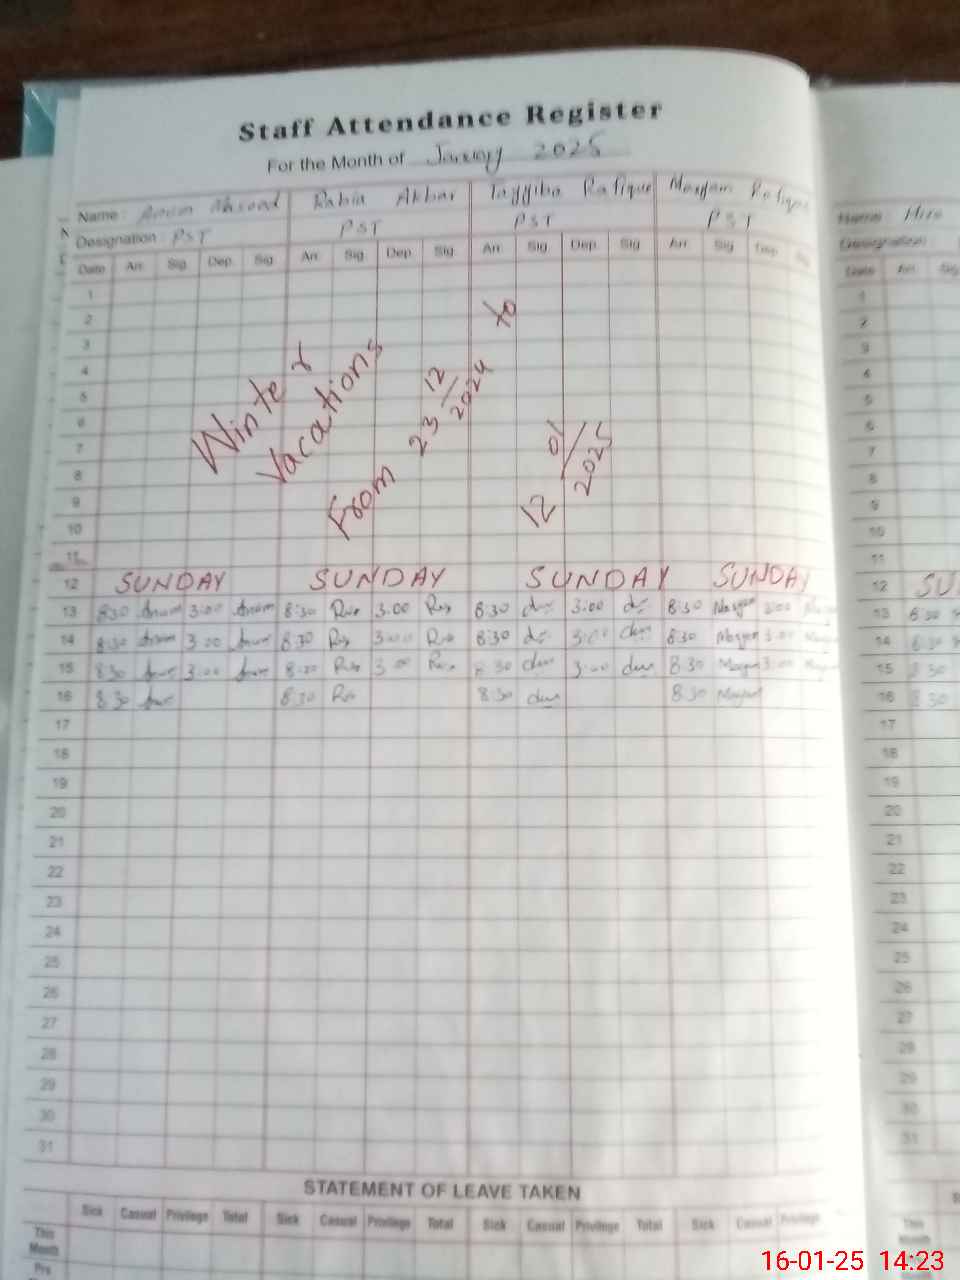 Staff Attendance Register
For the Month of January 2025
Name: Anum Masood Rabia Akbar Tayyiba Rafique Maryam Rafique
Designation PST PST PST PST
Date Arr. Sig. Dep. Sig. Arr. Sig. Dep. Sig. Arr. Sig. Dep. Sig. Arr. Sig. Dep. Sig.
Date Arr. Sig.
1 1
2 2
3 3
4 4
5 5
6 6
7 7
8 8
9 9
10 10
11 11
Winter
Vacations
From 23 12/2024 to
12 01/2025
12 SUNDAY SUNDAY SUNDAY SUNDAY 12 SU
13 8:30 Anum 3:00 Anum 8:30 3:00 8:30 3:00 8:30 Maryam 3:00 13 8:30
14 8:30 Anum 3:00 Anum 8:30 3:00 8:30 3:00 8:30 Maryam 3:00 14 8:30
15 8:30 3:00 8:30 3:00 8:30 3:00 8:30 Maryam 3:00 15 8:30
16 8:30 8:30 8:30 8:30 Maryam 16 8:30
17 17
18 18
19 19
20 20
21 21
22 22
23 23
24 24
25 25
26 26
27 27
28 28
29 29
30 30
31 31
STATEMENT OF LEAVE TAKEN
Sick Casual Privilege Total Sick Casual Privilege Total Sick Casual Privilege Total Sick Casual Privilege
This Month
This Month
Prs
16-01-25 14:23